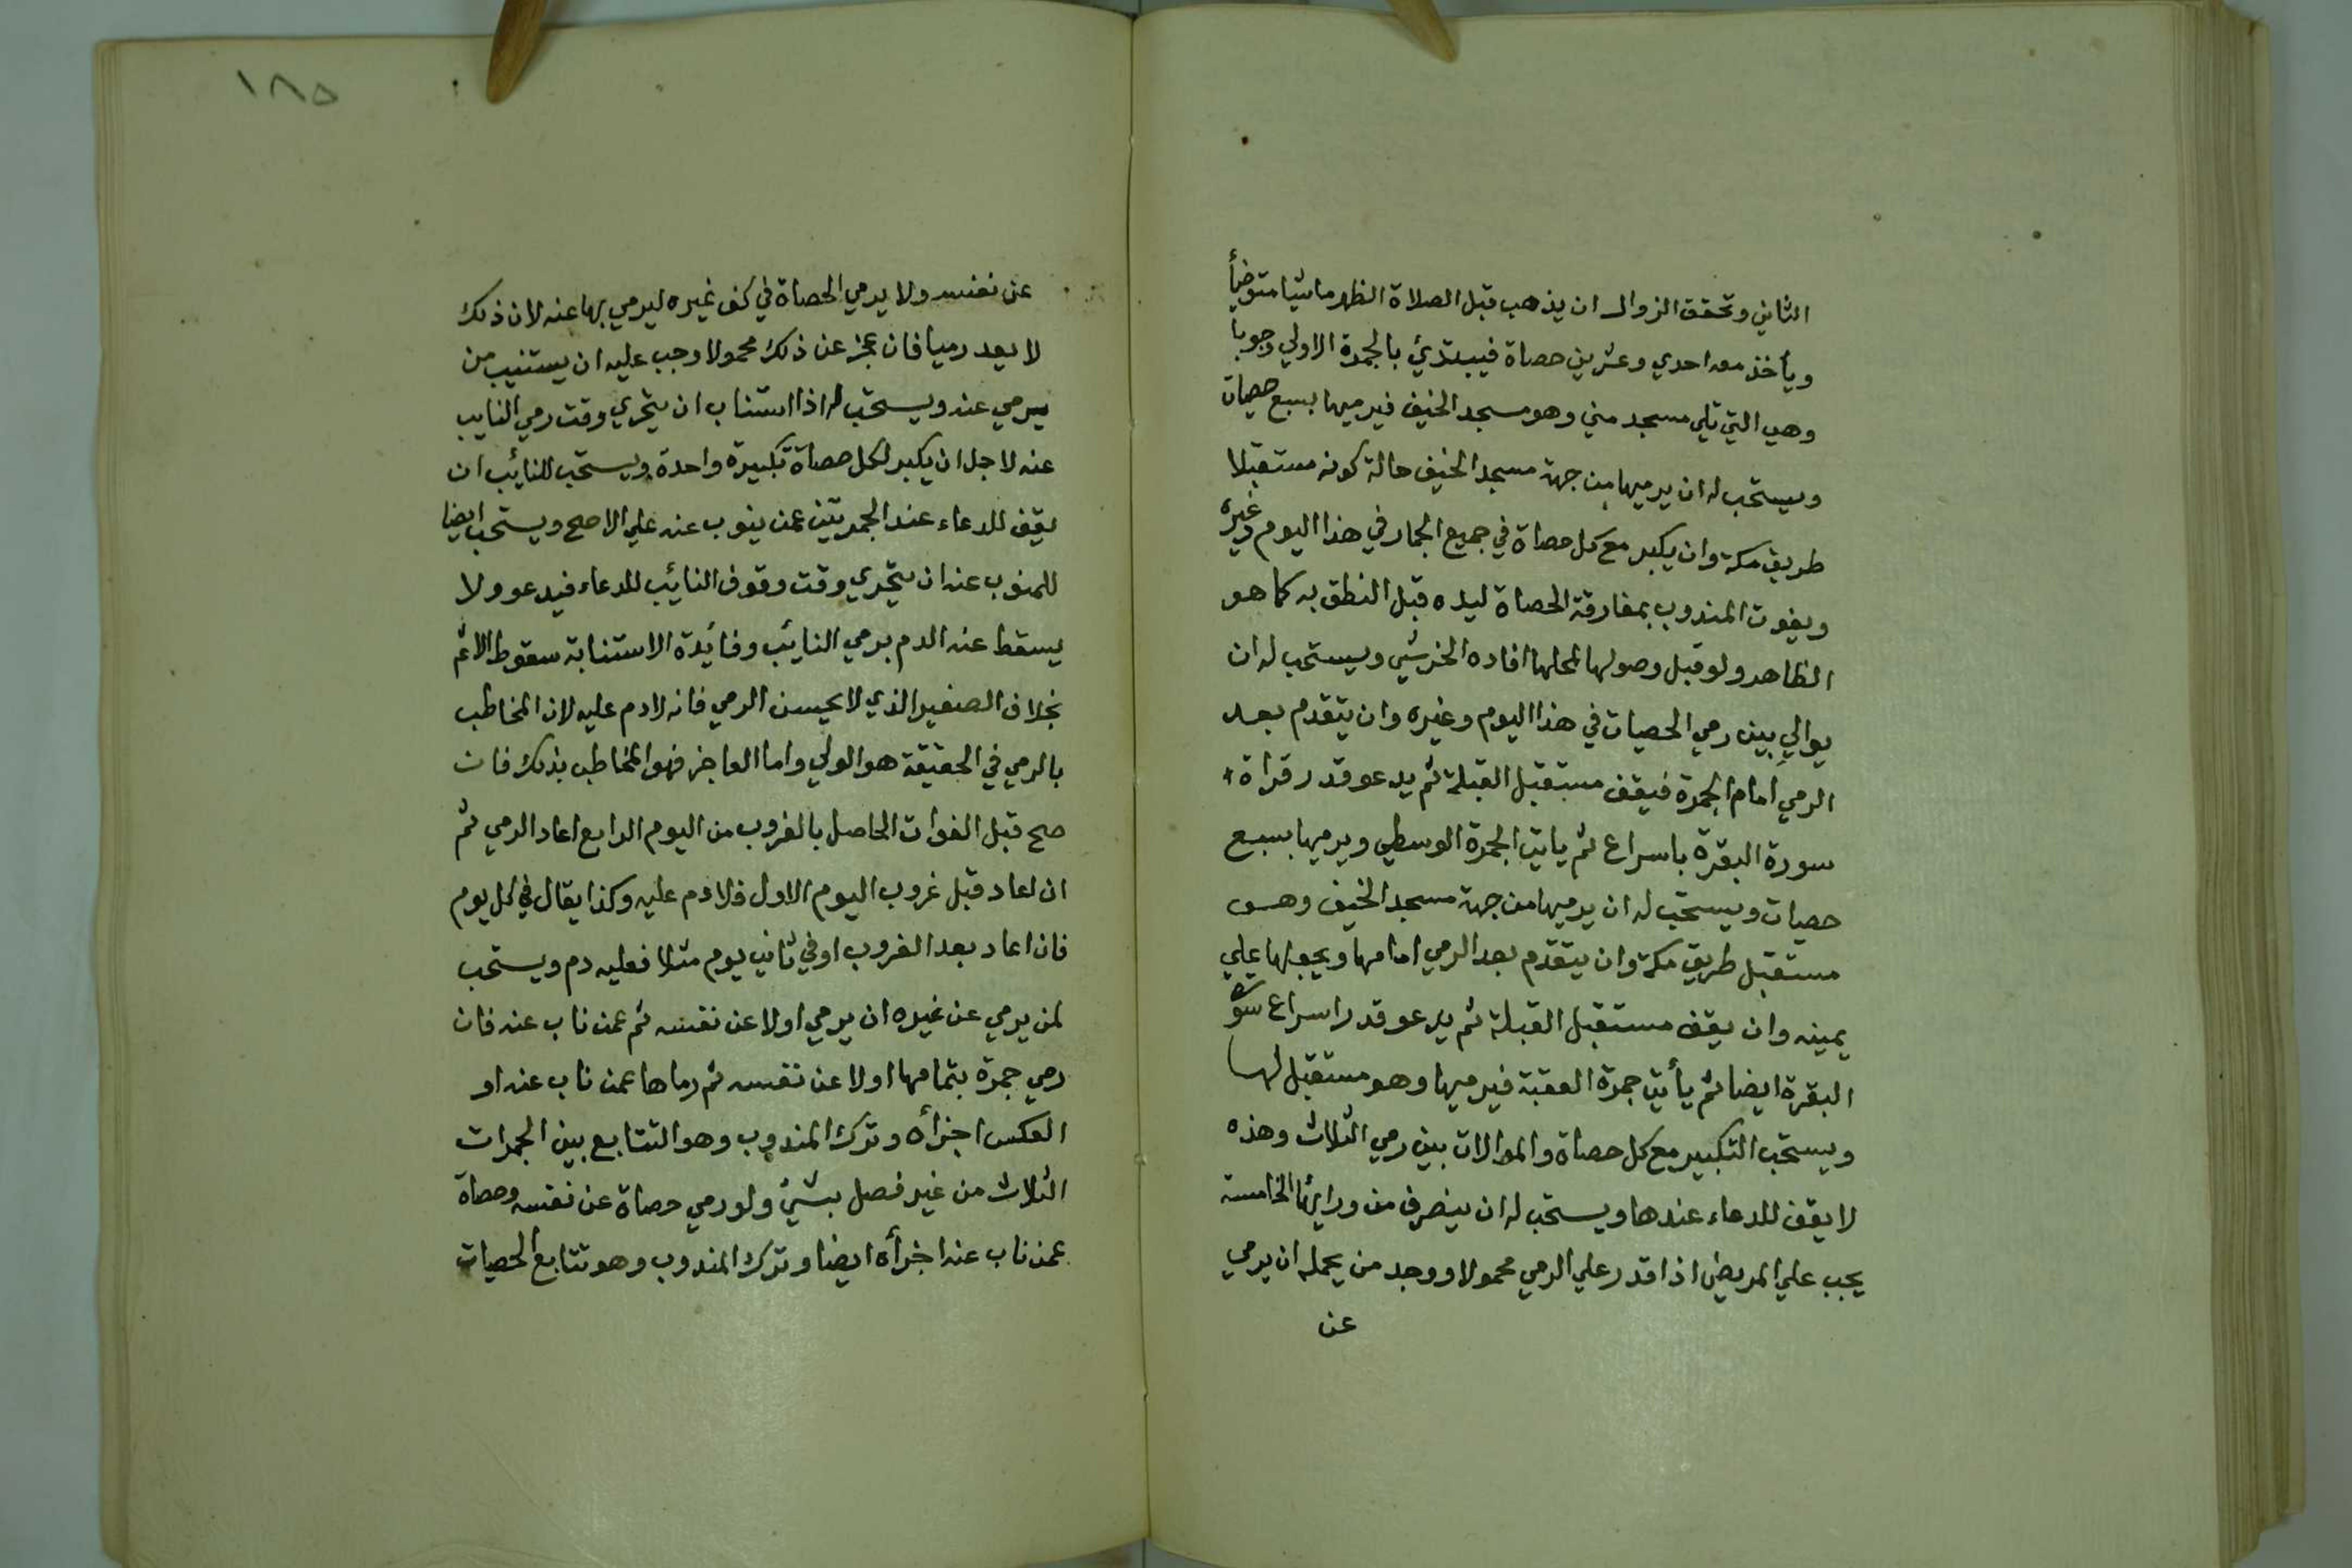 الثاني وتحقق الزوال ان يذهب قبل الصلاة الظهر ماشيا متوضأ
ويأخذ معه احدي وعشرين حصاة فيبتدئ بالجمرة الاولي وجوبا
وهي التي تلي مسجد مني وهو مسجد الخيف فيرميها بسبع حصيات
ويستحب له ان يرميها من جهة مسجد الخيف حالة كونه مستقبلا
طريق مكة وان يكبر مع كل حصاة في جميع الجمار في هذا اليوم وغيره
ويفوت المندوب بمفارقة الحصاة ليده قبل النطق به كما هو
الظاهر ولو قبل وصولها لمحلها افاده الخرشي ويستحب له ان
يوالي بين رمي الحصيات في هذا اليوم وغيره وان يتقدم بعد
الرمي امام الجمرة فيقف مستقبل القبلة ثم يدعو قدر قراة
سورة البقرة باسراع ثم ياتي الجمرة الوسطي ويرميها بسبع
حصيات ويستحب له ان يرميها من جهة مسجد الخيف وهو
مستقبل طريق مكة وان يتقدم بعد الرمي امامها ويجعلها علي
يمينه وان يقف مستقبل القبلة ثم يدعو قدر اسراع سورة
البقرة ايضا ثم يأتي جمرة العقبة فيرميها وهو مستقبل لها
ويستحب التكبير مع كل حصاة والموالات بين رمي الثلاث وهذه
لا يقف للدعاء عندها ويستحب له ان ينصرف من ورايها الخامسة
يجب علي المريض اذا قدر علي الرمي محمولا ووجد من يحمله ان يرمي
عن
١٨٥
عن نفسه ولا يرمي الحصاة في كف غيره ليرمي بها عنه لان ذلك
لا يعد رميا فان عجز عن ذلك محمولا وجب عليه ان يستنيب من
يرمي عنه ويستحب له اذا استناب ان يتحري وقت رمي النايب
عنه لاجل ان يكبر لكل حصاة تكبيرة واحدة ويستحب للنائب ان
يقف للدعاء عند الجمرتين عمن ينوب عنه علي الاصح ويستحب ايضا
للمنوب عنه ان يتحري وقت وقوف النائب للدعاء فيدعو ولا
يسقط عنه الدم برمي النايب وفائدة الاستنابة سقوط الاثم
بخلاف الصغير الذي لا يحسن الرمي فانه لا دم عليه لان المخاطب
بالرمي في الحقيقة هو الولي واما العاجز فهو المخاطب بذلك فان
صح قبل الفوات الحاصل بالغروب من اليوم الرابع اعاد الرمي ثم
ان اعاد قبل غروب اليوم الاول فلا دم عليه وكذا يقال في كل يوم
فان اعاد بعد الغروب او في ثاني يوم مثلا فعليه دم ويستحب
لمن يرمي عن غيره ان يرمي اولا عن نفسه ثم عمن ناب عنه فان
رمي جمرة بتمامها اولا عن نفسه ثم رماها عمن ناب عنه او
العكس اجزأه وترك المندوب وهو التتابع بين الجمرات
الثلاث من غير فصل بشيئ ولو رمي حصاة عن نفسه وحصاة
عمن ناب عنه اجزأه ايضا وترك المندوب وهو تتابع الحصيات